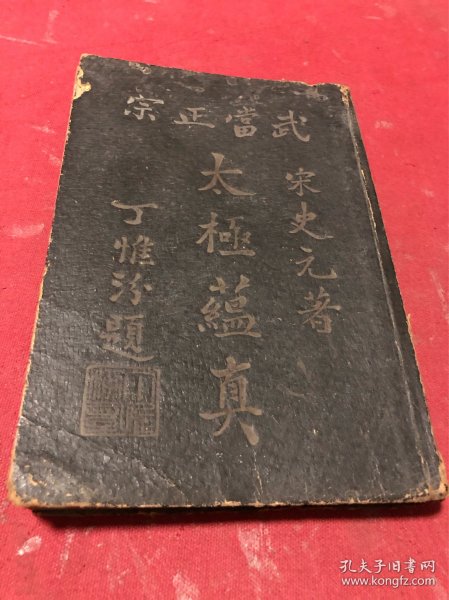 武當正宗
宋史元著
太極蘊真
丁惟汾題
孔夫子旧书网
www.kongfz.com